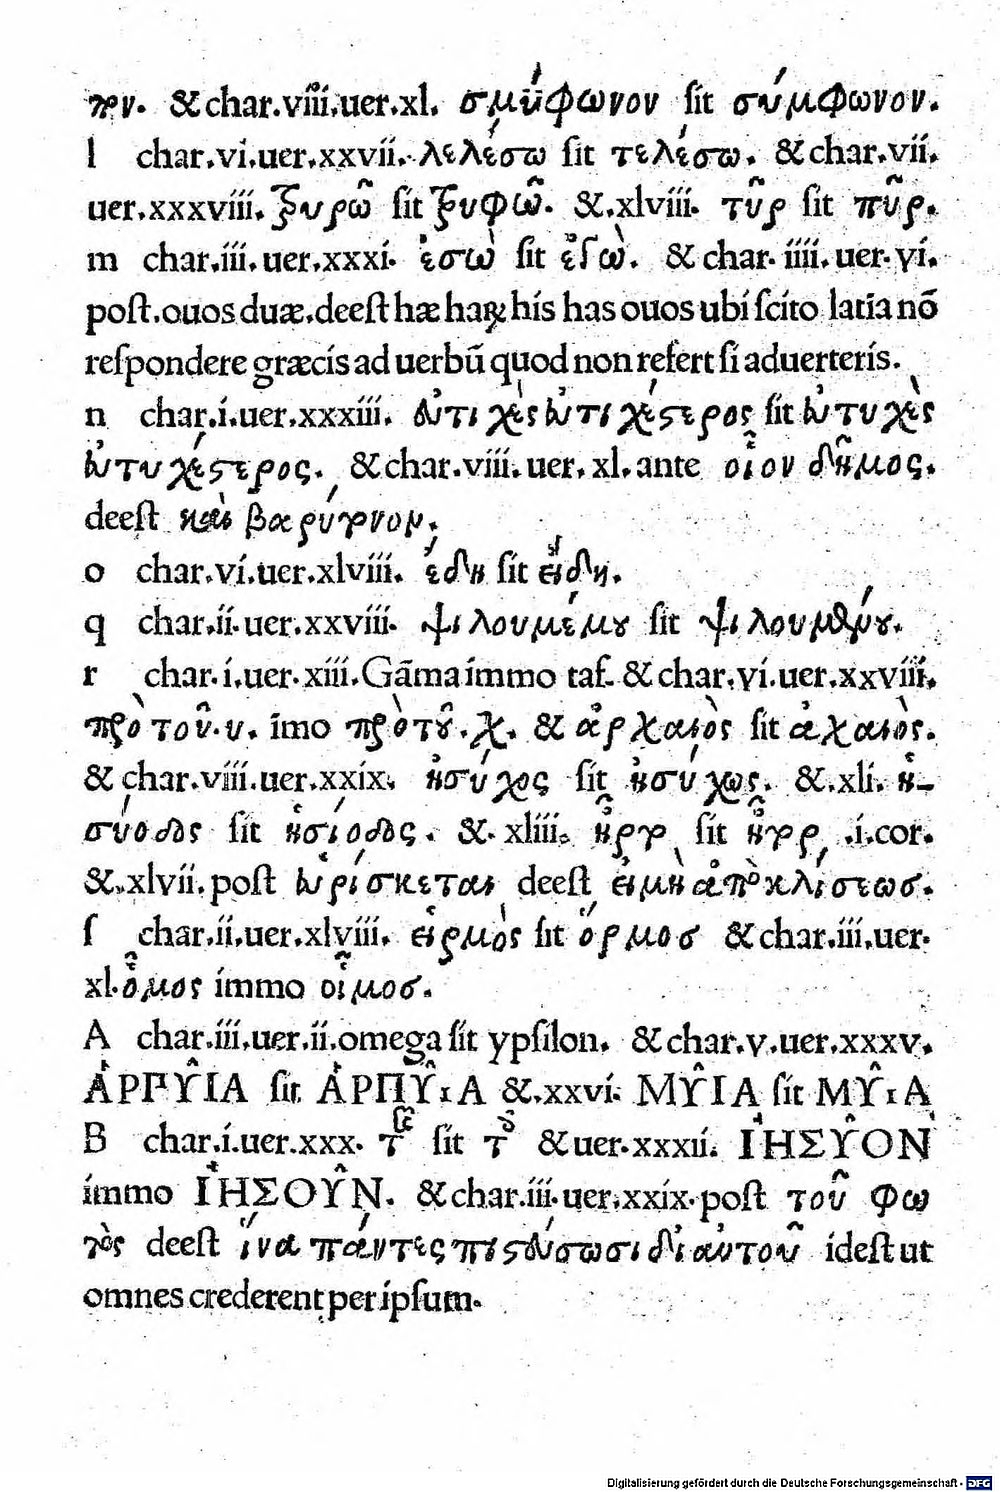 πρν. & char.viii.uer.xl. σμύφωνον ſit σύμφωνον.
l char.vi.uer.xxvii. λελέσω ſit τελέσω. & char.vii.
uer.xxxviii. ξυρῶ ſit ξυφῶ. &.xlviii. τῦρ ſit πῦρ.
m char.iii.uer.xxxi. ἐσὼ ſit ἐγὼ. & char. iiii. uer. vi.
poſt.ouos duæ.deeſt hæ haꝝ his has ouos ubi ſcito latia nō
reſpondere græcis ad uerbū quod non refert ſi aduerteris.
n char.i.uer.xxxiii. ἐυτιχὲς ἐυτιχέστερος ſit ἐυτυχὲς
ἐυτυχέστερος. & char.viii. uer. xl. ante οἷον δῆμος.
deeſt καὶ βαρύτονον.
o char.vi.uer.xlviii. ἔδη ſit εἴδη.
q char.ii.uer.xxviii. ψιλουμέμου ſit ψιλουμένου.
r char.i.uer.xiii. Gāma immo taf. & char.vi.uer.xxviii.
πρὸ τοῦ.υ. īmo πρὸ τοῦ.χ. & ἀρχαιὸς ſit ἀχαιὸς.
& char.viii.uer.xxix. ἡσύχος ſit ἡσύχως. &.xli. ἡ-
σύοδος ſit ἡσίοδος. &. xliii. ſit .i.cor.
&.xlvii. poſt ἑυρίσκεται deeſt εἰ μὴ ἀπὸ κλίσεως.
ſ char.ii.uer.xlviii. εἱρμὸς ſit ὅρμος & char.iii.uer.
xl. ὄμος immo οἶμος.
A char.iii.uer.ii.omega ſit ypſilon. & char.v.uer.xxxv.
ἉΡΠΥῖΑ ſit ἉΡΠΥῖΑ &.xxvi. ΜΥῖΑ ſit ΜΥῖΑ
B char.i.uer.xxx. ſit & uer.xxxii. ἸΗΣΥ͂ΟΝ
immo ἸΗΣΟΥ͂Ν. & char.iii.uer.xxix.poſt τοῦ φω
τὸς deeſt ἵνα πάντες πιστέυσωσι δι ἀυτοῦ ideſt ut
omnes crederent per ipſum.
Digitalisierung gefördert durch die Deutsche Forschungsgemeinschaft - DFG